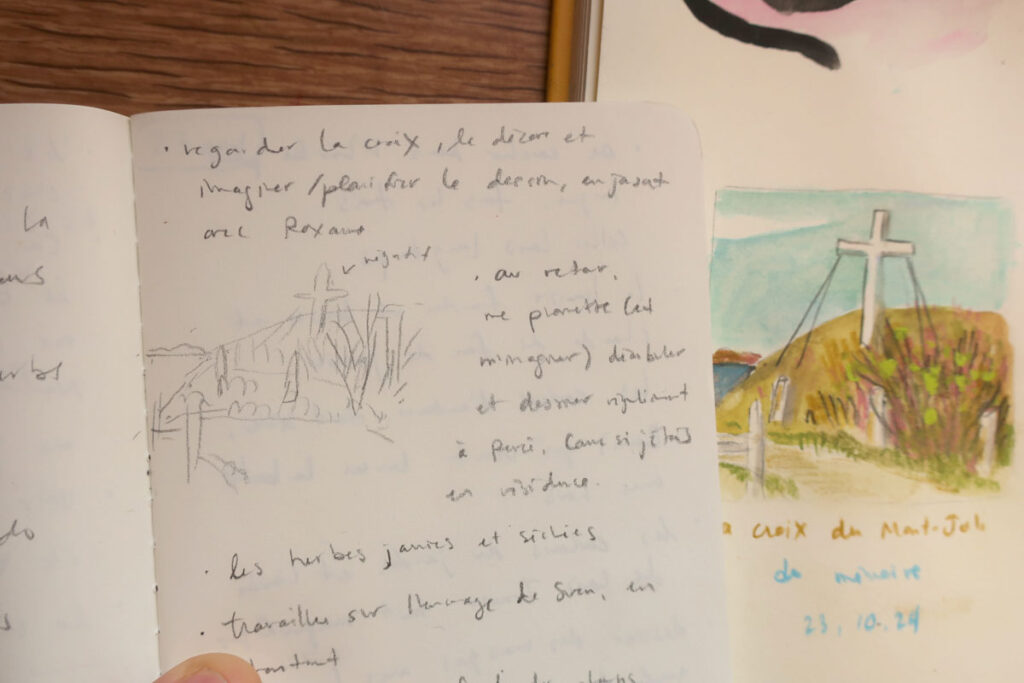 la
• regarder la croix, le décor et
imaginer / planifier le dessin, en jasant
avec Roxanne
négatif
• au retour,
me promettre (et
m'imaginer) déambuler
et dessiner régulièrement
à Percé, comme si j'étais
en résidence.
• les herbes jaunies et séchées
• travailler sur l'encrage de Sven, en
la croix du Mont-Joli
de mémoire
23.10.24